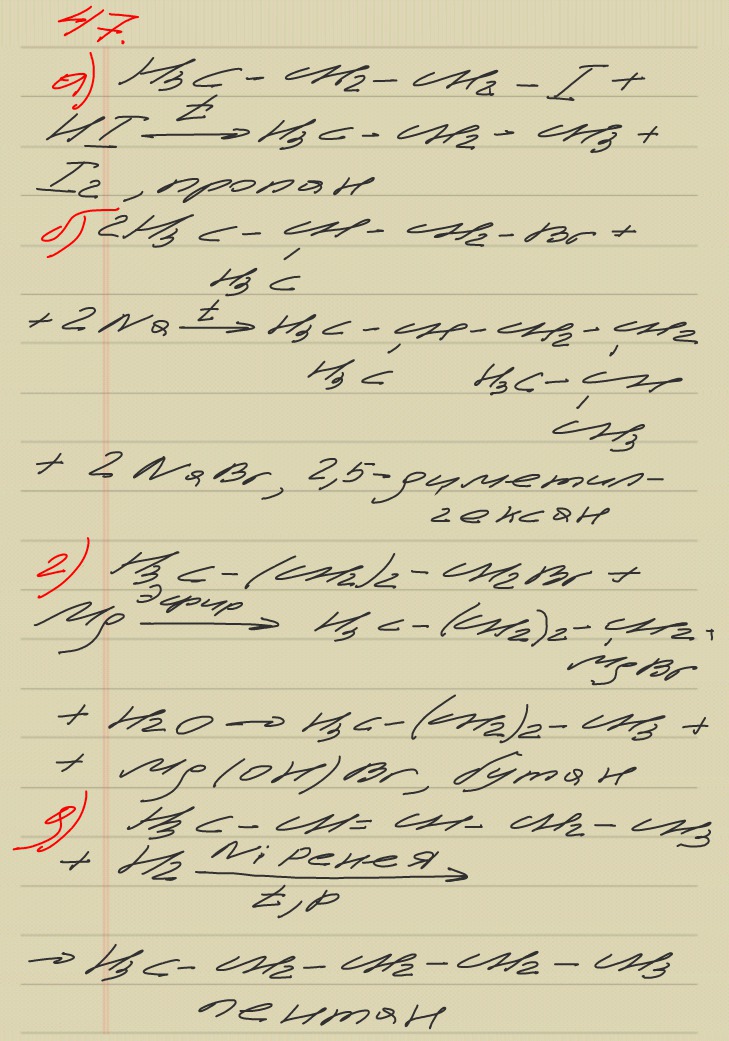 47.
а) H3C - CH2 - CH2 - I +
HI t→ H3C - CH2 - CH3 +
I2, пропан
б) 2H3C - CH - CH2 - Br +
H3C
+ 2Na t→ H3C - CH - CH2 - CH2
H3C H3C - CH
CH3
+ 2NaBr, 2,5-диметил-
гексан
г) H3C - (CH2)2 - CH2Br +
Mg эфир→ H3C - (CH2)2 - CH2 +
MgBr
+ H2O → H3C - (CH2)2 - CH3 +
+ Mg(OH)Br, бутан
д) H3C - CH = CH - CH2 - CH3
+ H2 Ni Ренея→
t, p
→ H3C - CH2 - CH2 - CH2 - CH3
пентан